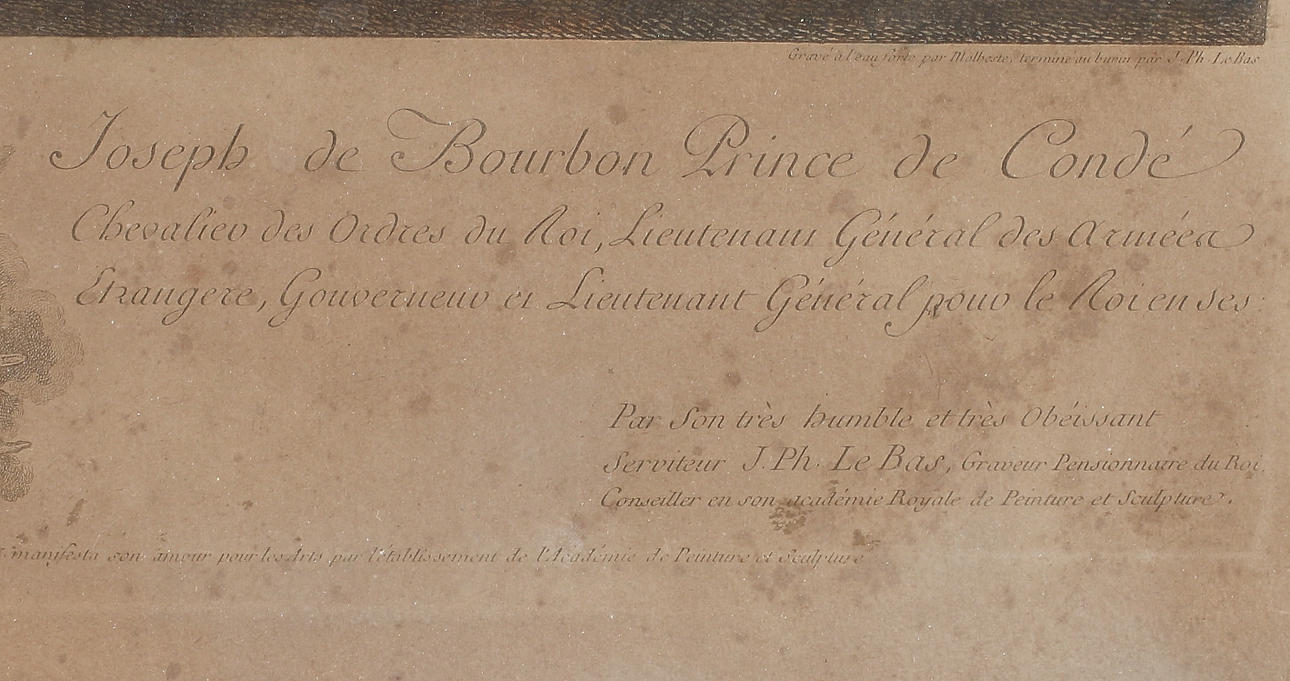 Gravé à l'eau forte par Malbeste, terminé au burin par J. Ph. Le Bas
Joseph de Bourbon Prince de Condé
Chevalier des Ordres du Roi, Lieutenant Général des Armées
Etrangere, Gouverneur et Lieutenant Général pour le Roi en ses
Par Son très humble et très Obéissant
Serviteur J. Ph. Le Bas, Graveur Pensionnaire du Roi,
Conseiller en son académie Royale de Peinture et Sculpture.
manifesta son amour pour les Arts par l'établissement de l'Académie de Peinture et Sculpture